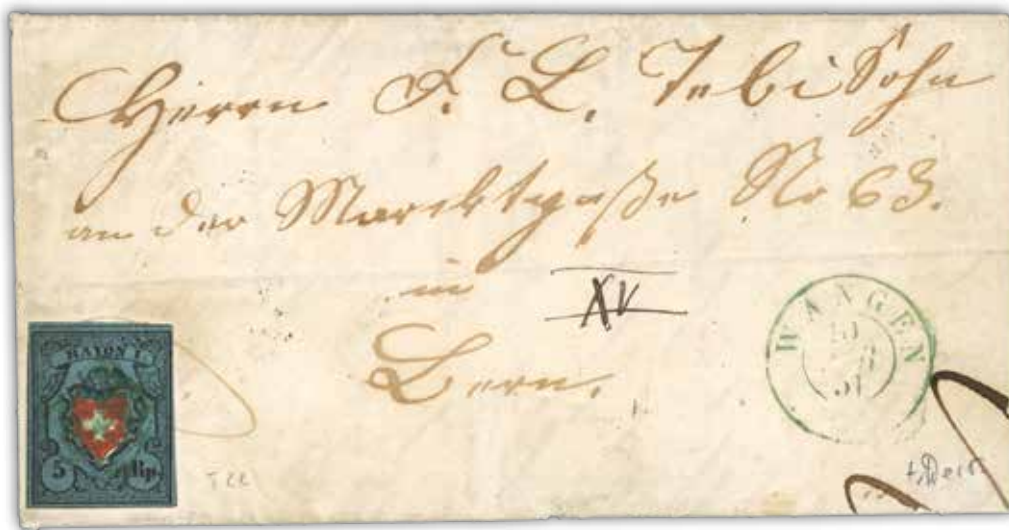 Herrn F. L. Tobi Sohn
an der Marcktgaße No 63.
in
XV
Bern.
WANGEN
51
RAYON I.
5 Rp.
T 22